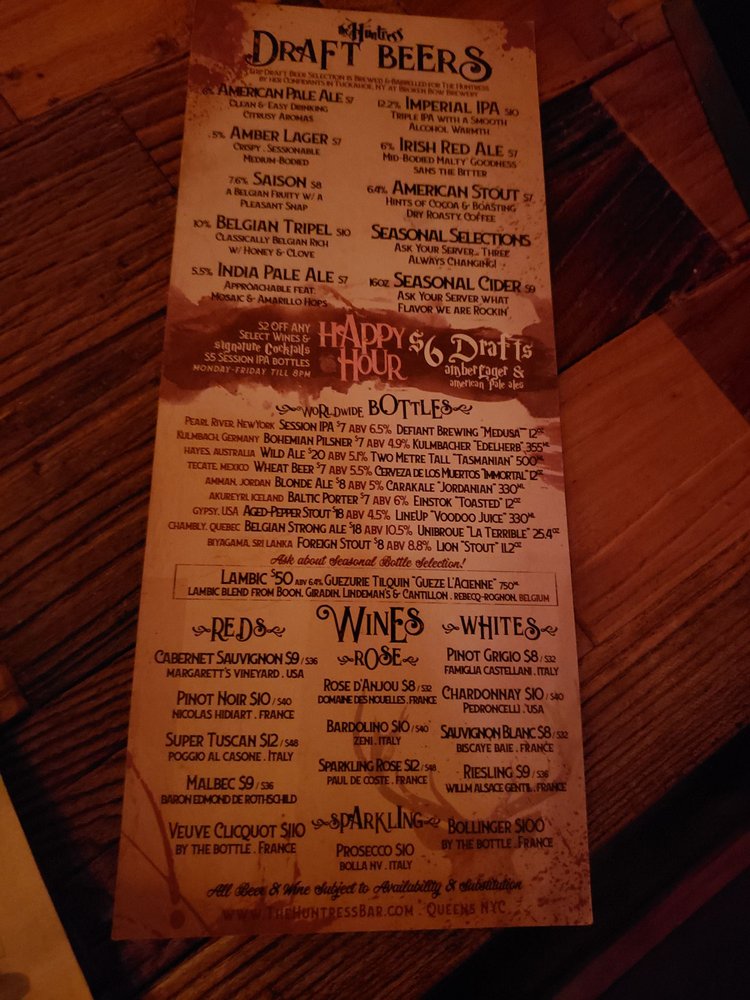 the Huntress
DRAFT BEERS
Our Draft Beer Selection is Brewed & Barrelled for The Huntress
by her Confidants in Tuckahoe, NY. at Broken Bow Brewery
AMERICAN PALE ALE $7
CLEAN & EASY DRINKING
CITRUSY AROMAS
.5% AMBER LAGER $7
CRISPY . SESSIONABLE
MEDIUM-BODIED
7.6% SAISON $8
A BELGIAN FRUITY W/ A
PLEASANT SNAP
10% BELGIAN TRIPEL $10
CLASSICALLY BELGIAN RICH
W/ HONEY & CLOVE
5.5% INDIA PALE ALE $7
APPROACHABLE FEAT.
MOSAIC & AMARILLO HOPS
12.2% IMPERIAL IPA $10
TRIPLE IPA WITH A SMOOTH
ALCOHOL WARMTH
6% IRISH RED ALE $7
MID-BODIED MALTY GOODNESS
SANS THE BITTER
6.4% AMERICAN STOUT $7
HINTS OF COCOA & BOASTING
DRY ROASTY, COFFEE
SEASONAL SELECTIONS
ASK YOUR SERVER... THREE
ALWAYS CHANGING!
16OZ SEASONAL CIDER $9
ASK YOUR SERVER WHAT
FLAVOR WE ARE ROCKIN'
$2 OFF ANY
SELECT WINES &
signature Cocktails
$5 SESSION IPA BOTTLES
MONDAY-FRIDAY TILL 8PM
HAPPY
HOUR
$6 Drafts
amber Lager &
american Pale ales
WORLDWIDE BOTTLES
PEARL RIVER, NEW YORK SESSION IPA $7 ABV 6.5% DEFIANT BREWING "MEDUSA" 12OZ
KULMBACH, GERMANY BOHEMIAN PILSNER $7 ABV 4.9% KULMBACHER "EDELHERB" 355ML
HAYES, AUSTRALIA WILD ALE $20 ABV 5.1% TWO METRE TALL "TASMANIAN" 500ML
TECATE, MEXICO WHEAT BEER $7 ABV 5.5% CERVEZA DE LOS MUERTOS "IMMORTAL" 12OZ
AMMAN, JORDAN BLONDE ALE $8 ABV 5% CARAKALE "JORDANIAN" 330ML
AKUREYRI, ICELAND BALTIC PORTER $7 ABV 6% EINSTOK "TOASTED" 12OZ
GYPSY, USA AGED-PEPPER STOUT $18 ABV 4.5% LINEUP "VOODOO JUICE" 330ML
CHAMBLY, QUEBEC BELGIAN STRONG ALE $18 ABV 10.5% UNIBROUE "LA TERRIBLE" 25.4OZ
BIYAGAMA, SRI LANKA FOREIGN STOUT $8 ABV 8.8% LION "STOUT" 11.2OZ
Ask about Seasonal Bottle Selection!
LAMBIC $50 ABV 6.4% GUEZURIE TILQUIN "GUEZE L'ACIENNE" 750ML
LAMBIC BLEND FROM BOON, GIRADIN, LINDEMAN'S & CANTILLON . REBECQ-ROGNON, BELGIUM
WINES
REDS
CABERNET SAUVIGNON $9 / $36
MARGARETT'S VINEYARD . USA
PINOT NOIR $10 / $40
NICOLAS HIDIART . FRANCE
SUPER TUSCAN $12 / $48
POGGIO AL CASONE . ITALY
MALBEC $9 / $36
BARON EDMOND DE ROTHSCHILD
VEUVE CLICQUOT $110
BY THE BOTTLE . FRANCE
ROSE
ROSE D'ANJOU $8 / $32
DOMAINE DES NOUELLES . FRANCE
BARDOLINO $10 / $40
ZENI . ITALY
SPARKLING ROSE $12 / $48
PAUL DE COSTE . FRANCE
SPARKLING
PROSECCO $10
BOLLA NV . ITALY
WHITES
PINOT GRIGIO $8 / $32
FAMIGLIA CASTELLANI . ITALY
CHARDONNAY $10 / $40
PEDRONCELLI . USA
SAUVIGNON BLANC $8 / $32
BISCAYE BAIE . FRANCE
RIESLING $9 / $36
WILLM ALSACE GENTIL . FRANCE
BOLLINGER $100
BY THE BOTTLE . FRANCE
All Beer & Wine Subject to Availability & Substitution
WWW.THEHUNTRESSBAR.COM . QUEENS NYC